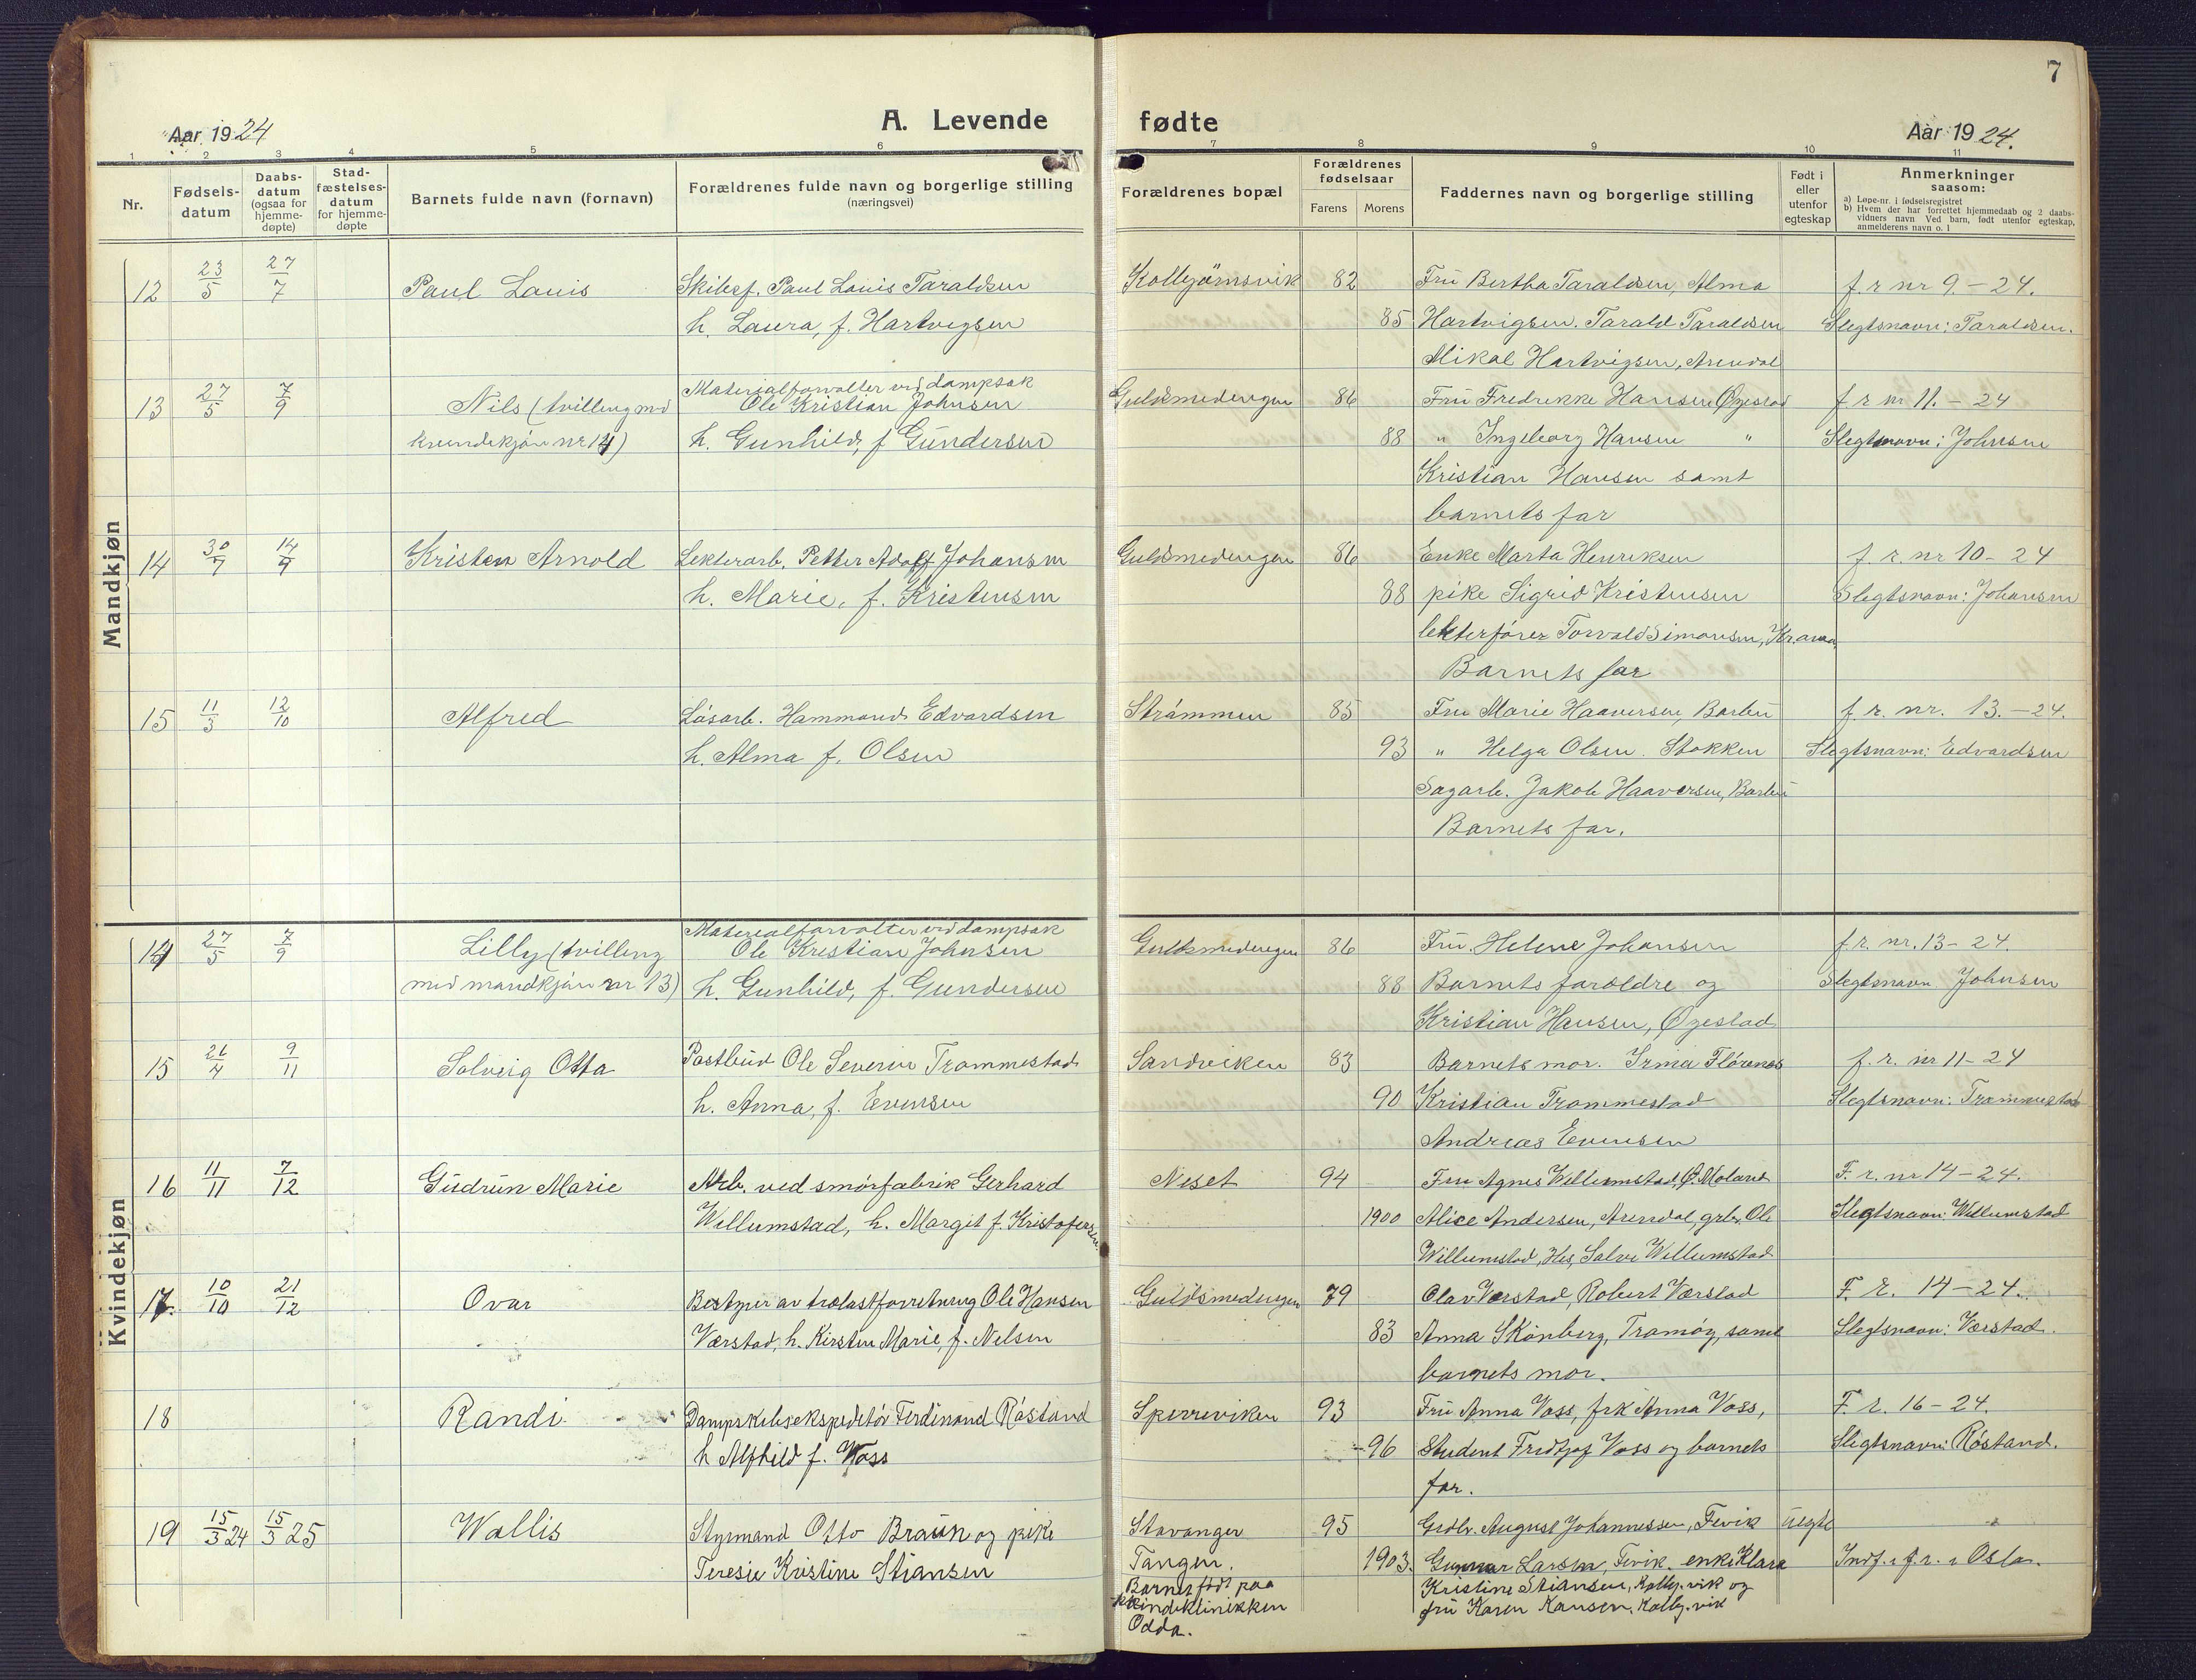 7
Aar 1924
A. Levende
fødte
Aar 1924.
1 2 3 4 5 6 7 8 9 10 11
Nr.
Fødsels-
datum
Daabs-
datum
(ogsaa for
hjemme-
døpte)
Stad-
fæstelses-
datum
for hjemme-
døpte
Barnets fulde navn (fornavn)
Forældrenes fulde navn og borgerlige stilling
(næringsvei)
Forældrenes bopæl
Forældrenes
fødselsaar
Farens
Morens
Faddernes navn og borgerlige stilling
Født i
eller
utenfor
egteskap
Anmerkninger
saasom:
a) Løpe-nr. i fødselsregistret
b) Hvem der har forrettet hjemmedaab og 2 daabs-
vidners navn Ved barn, født utenfor egteskap,
anmelderens navn o. l
Mandkjøn
12 23/5 27/7 Paul Louis Skibsf. Paul Louis Taraldsen Kolbjørnsvik 82 Fru Bertha Taraldsen, Alma f. r nr 9.-24.
h. Laura, f. Hartvigsen 85 Hartvigsen. Tarald Taraldsen Slegtsnavn: Taraldsen.
Mikal Hartvigsen, Arendal
Materialforvalter ved dampsak
13 27/5 7/9 Nils (tvilling md Ole Kristian Johnsen Guldsmedengen 86 Fru Fredrikke Hansen Øyestad f r nr 11.-24
kvindekjøn nr 14) h. Gunhild, f Gundersen 88 " Ingeborg Hansen " Slegtsnavn: Johnsen
Kristian Hansen samt
barnets far
14 30/7 14/9 Kristen Arnold Lekterarb. Petter Adolf Johansen Guldsmedengen 86 Enke Marta Henriksen f. r. nr 10-24
h. Marie, f. Kristensen 88 pike Sigrid Kristensen Slegtsnavn: Johansen
lekterfører Torvald Simonsen,
Barnets far
15 11/3 12/10 Alfred Løsarb. Hammond Edvardsen Strømmen 85 Fru Marie Haaversen, Barbu f. r. nr. 13.-24.
h. Alma f. Olsen 93 " Helga Olsen. Stokken Slegtsnavn: Edvardsen
Sagarb. Jakob Haaversen, Barbu
Barnets far.
Kvindekjøn
Materialforvalter ved dampsak
14 27/5 7/9 Lilly (tvilling Ole Kristian Johnsen Guldsmedengen 86 Fru. Helene Johansen f. r. nr. 13-24.
med mandkjøn nr 13) h. Gunhild, f. Gundersen 88 Barnets forældre og Slegtsnavn Johnsen
Kristian Hansen, Øyestad
15 26/4 9/11 Solveig Otta Postbud Ole Severin Trommestad Sandviken 83 Barnets mor. Irma Florenes f. r. nr 11-24
h. Anna, f. Evensen 90 Kristian Trommestad Slegtsnavn: Trommestad
Andreas Evensen
16 11/11 7/12 Gudrun Marie Arb. ved smørfabrik Gerhard Neset 94 Fru Agnes Willumstad, Ø. Moland F. r. nr 14-24.
Willumstad, h. Margit f. Kristofersen. 1900 Alice Andersen, Arendal, grbr. Ole Slegtsnavn: Willumstad
Willumstad, His, Salve Willumstad
17. 10/10 21/12 Ovar Bestyrer av trælastforretning Ole Hansen Guldsmedengen 79 Olav Værstad, Robert Værstad F. r. 14-24.
Værstad, h. Kirsten Marie, f. Nelsen 83 Anna Skonberg, Tromøy, samt Slegtsnavn: Værstad.
barnets mor.
18 Randi. Dampskibsekspeditør Ferdinand Røstand Sperreviken 93 Fru Anna Voss, frk Anna Voss, F. r. 16-24.
h Alfhild f. Voss 96 Student Fredtjof Voss og barnets Slegtsnavn: Røstand.
far.
19 15/3 24 15/3 25 Wallis Styrmand Otto Braun og pike Stavanger 95 Grdbr. August Johannessen, Fevik uegte "
Teresie Kristine Stiansen Tangen. 1903. Gunnar Larsen, Fevik. enke Klara Indf. i f. r. i Oslo.
Barnet født paa Kristine Stiansen, Kolbj.vik og
kvindeklinikken fru Karen Hansen, Kolbj.vik
Odda.